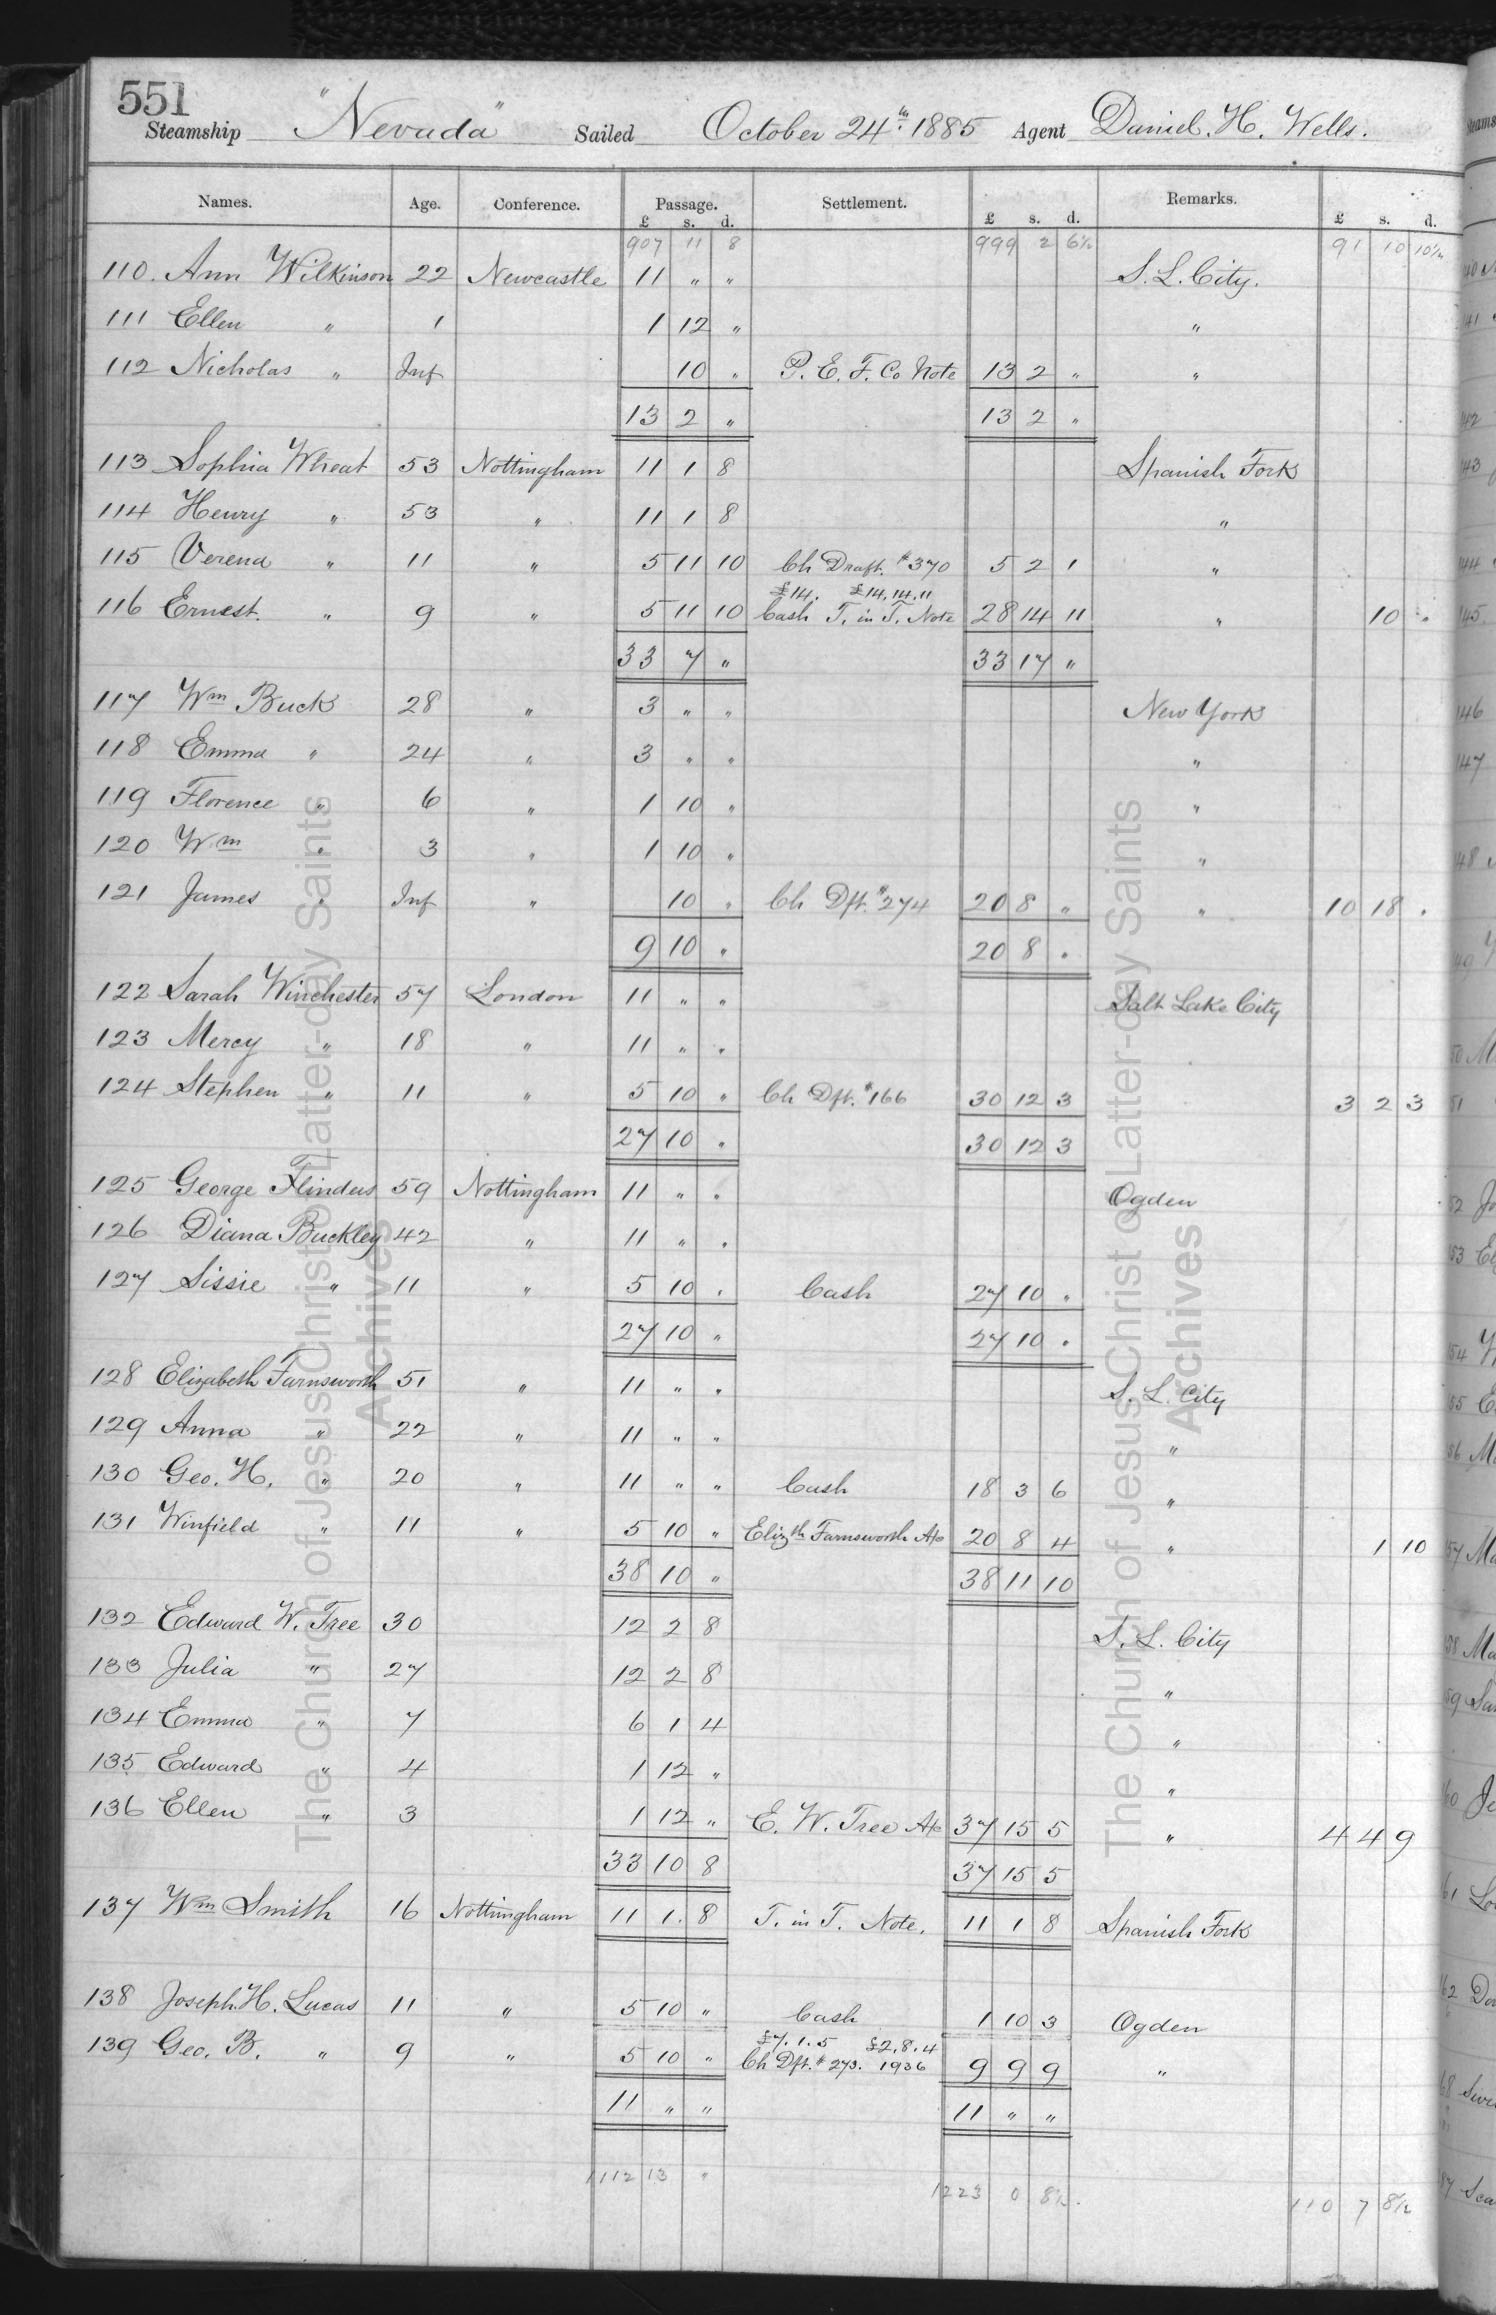 551
Steamship "Nevada" Sailed October 24th 1885 Agent Daniel. H. Wells.
Names. Age. Conference. Passage. Settlement. Remarks.
£ s. d. £ s. d. £ s. d.
907 11 8 999 2 6½ 91 10 10½
110. Ann Wilkinson 22 Newcastle 11 " " S. L. City.
111 Ellen " 1 1 12 " "
112 Nicholas " Inf 10 " P. E. F. Co Note 13 2 " "
13 2 " 13 2 "
113 Sophia Wheat 53 Nottingham 11 1 8 Spanish Fork
114 Henry " 53 " 11 1 8 "
115 Verena " 11 " 5 11 10 Ch Draft. #370 5 2 1 "
£14. £14.14.11
116 Ernest. " 9 " 5 11 10 Cash T. in T. Note 28 14 11 " 10 "
33 7 " 33 17 "
117 Wm Buck 28 " 3 " " New York
118 Emma " 24 " 3 " " "
119 Florence " 6 " 1 10 " "
120 Wm " 3 " 1 10 " "
121 James " Inf " 10 " Ch Dft. #274 20 8 " " 10 18 "
9 10 " 20 8 "
122 Sarah Winchester 57 London 11 " " Salt Lake City
123 Mercy " 18 " 11 " "
124 Stephen " 11 " 5 10 " Ch Dft. #166 30 12 3 3 2 3
27 10 " 30 12 3
125 George Flinders 59 Nottingham 11 " " Ogden
126 Diana Buckley 42 " 11 " "
127 Sissie " 11 " 5 10 " Cash 27 10 "
27 10 " 27 10 "
128 Elizabeth Farnsworth 51 " 11 " " S. L. City
129 Anna " 22 " 11 " " "
130 Geo. H. " 20 " 11 " " Cash 18 3 6 "
131 Winfield " 11 " 5 10 " Elizth Farnsworth A/c 20 8 4 " 1 10
38 10 " 38 11 10
132 Edward W. Tree 30 12 2 8 S. L. City
133 Julia " 27 12 2 8 "
134 Emma " 7 6 1 4 "
135 Edward " 4 1 12 " "
136 Ellen " 3 1 12 " E. W. Tree A/c 37 15 5 " 4 4 9
33 10 8 37 15 5
137 Wm Smith 16 Nottingham 11 1. 8 T. in T. Note. 11 1 8 Spanish Fork
138 Joseph. H. Lucas 11 " 5 10 " Cash 1 10 3 Ogden
£7.1.5 £2.8.4
139 Geo. B. " 9 " 5 10 " Ch Dft. #273. 1936 9 9 9 "
11 " " 11 " "
1112 13 " 1223 0 8½. 110 7 8½
The Church of Jesus Christ of Latter-day Saints
Archives
The Church of Jesus Christ of Latter-day Saints
Archives